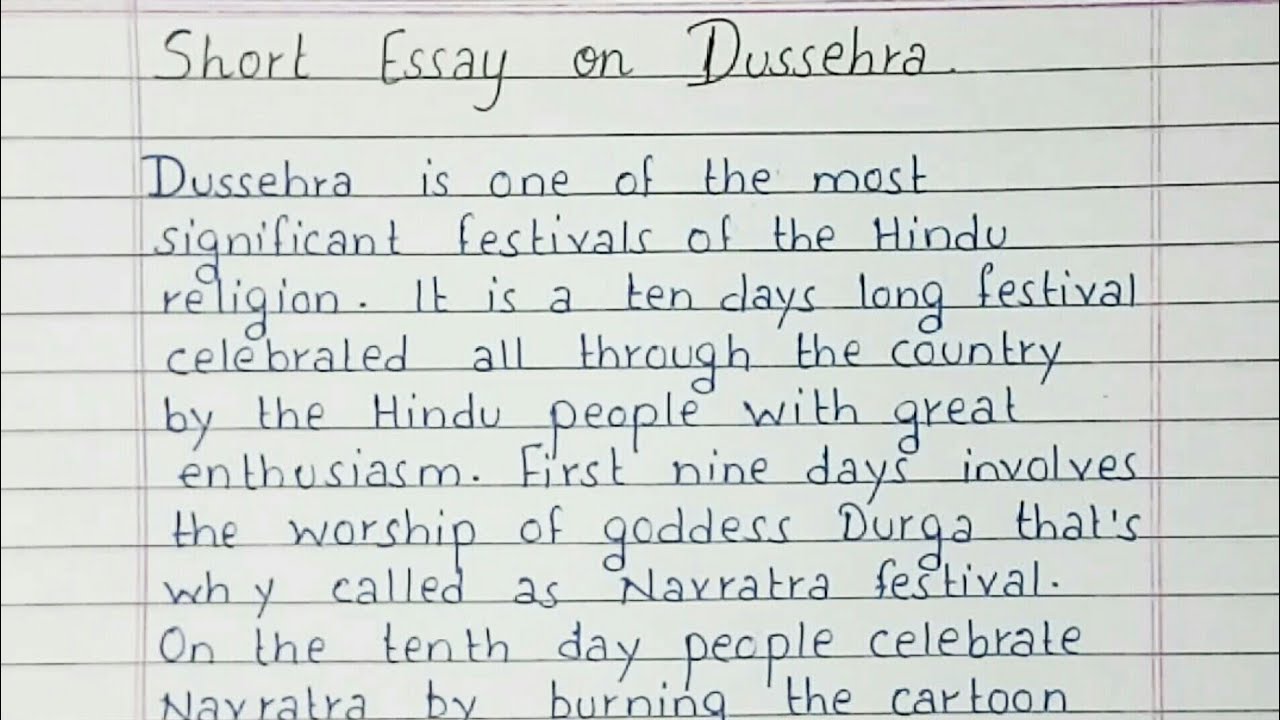 Short Essay on Dussehra.
Dussehra is one of the most
significant festivals of the Hindu
religion. It is a ten days long festival
celebrated all through the country
by the Hindu people with great
enthusiasm. First nine days involves
the worship of goddess Durga that's
why called as Navratra festival.
On the tenth day people celebrate
Navratra by burning the cartoon